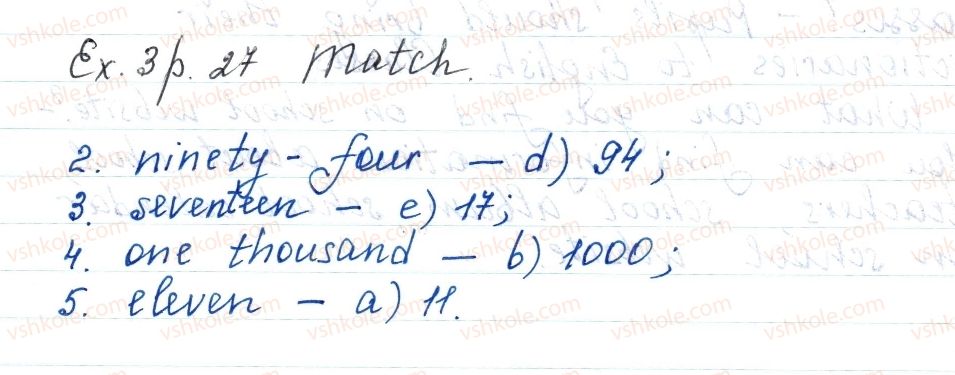 Ex. 3 p. 27 Match.
2. ninety-four - d) 94;
3. seventeen - e) 17;
4. one thousand - b) 1000;
5. eleven - a) 11.